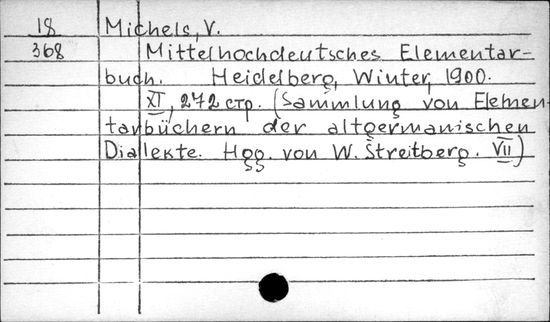 18 Michels, V.
368 Mittelhochdeutsches Elementar-
buch. Heidelberg, Winter, 1900.
XI, 272 стр. (Sammlung von Elemen-
tarbüchern der altgermanischen
Dialekte. Hgg. von W. Streitberg. VII)